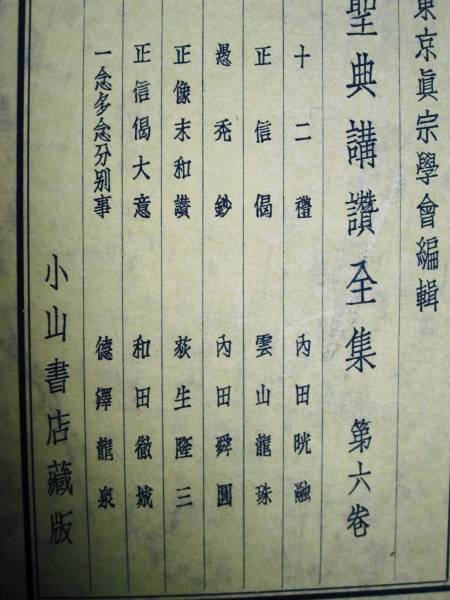 東京眞宗學會編輯
聖典講讃全集 第六卷
十二禮 內田晄融
正信偈 雲山龍珠
愚禿鈔 內田舜圓
正像末和讚 荻生隆三
正信偈大意 和田徹城
一念多念分別事 德澤龍泉
小山書店藏版